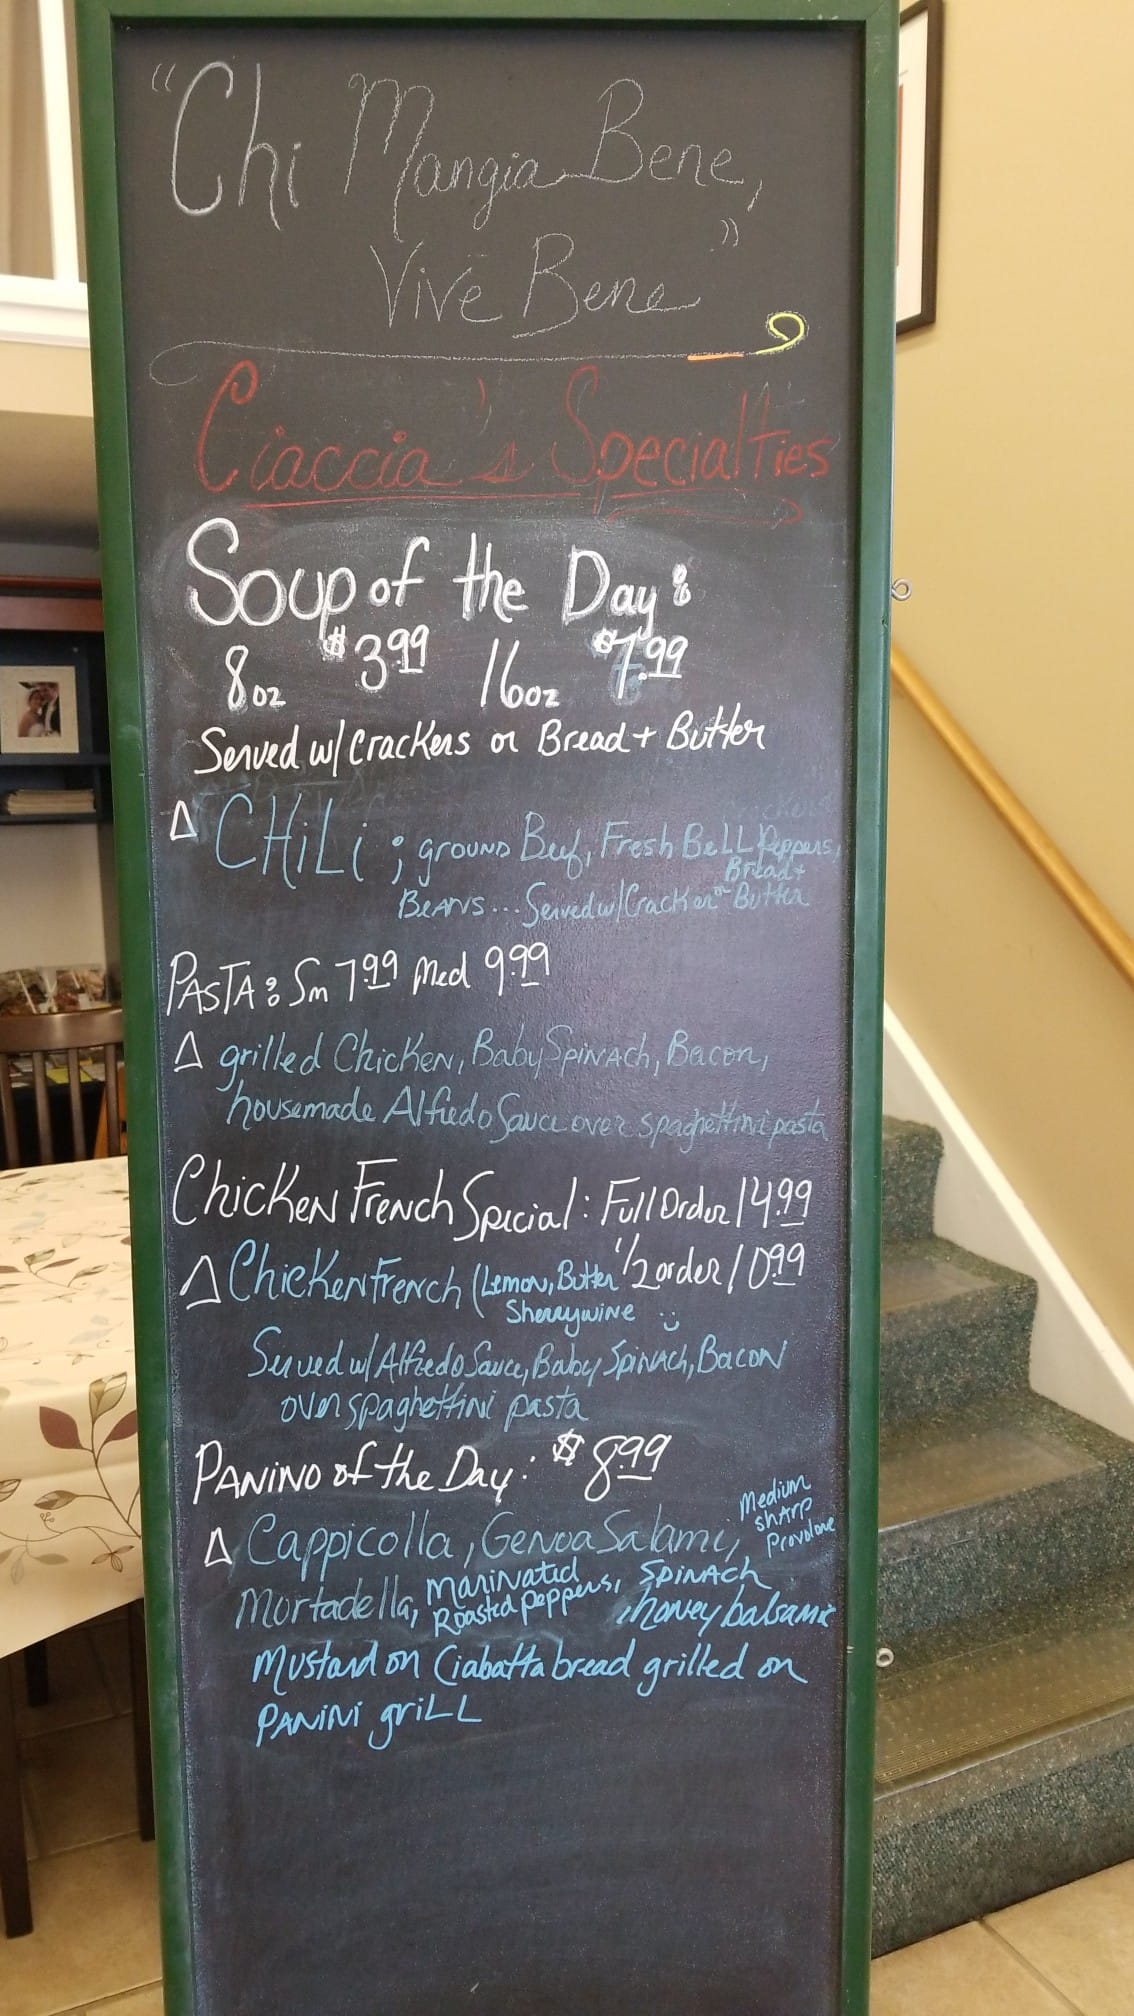 "Chi Mangia Bene,
Vive Bene"
Ciaccia's Specialties
Soup of the Day:
8oz $3.99 16oz $7.99
Served w/ Crackers or Bread + Butter
CHiLi; ground Beef, Fresh BeLL Peppers,
BEANS... Served w/ Cracker or Bread + Butter
PASTA: Sm 7.99 Med 9.99
grilled Chicken, Baby Spinach, Bacon,
housemade Alfredo Sauce over spaghettini pasta
Chicken French Special: Full Order 14.99
1/2 order 10.99
Chicken French (Lemon, Butter
Sherrywine
Served w/ Alfredo Sauce, Baby Spinach, Bacon
over spaghettini pasta
PANINO of the Day: $8.99
Cappicolla, Genoa Salami, Medium sharp Provolone
Mortadella, Marinated Roasted peppers, Spinach, honey balsamic
Mustard on Ciabatta bread grilled on
PANiNi griLL